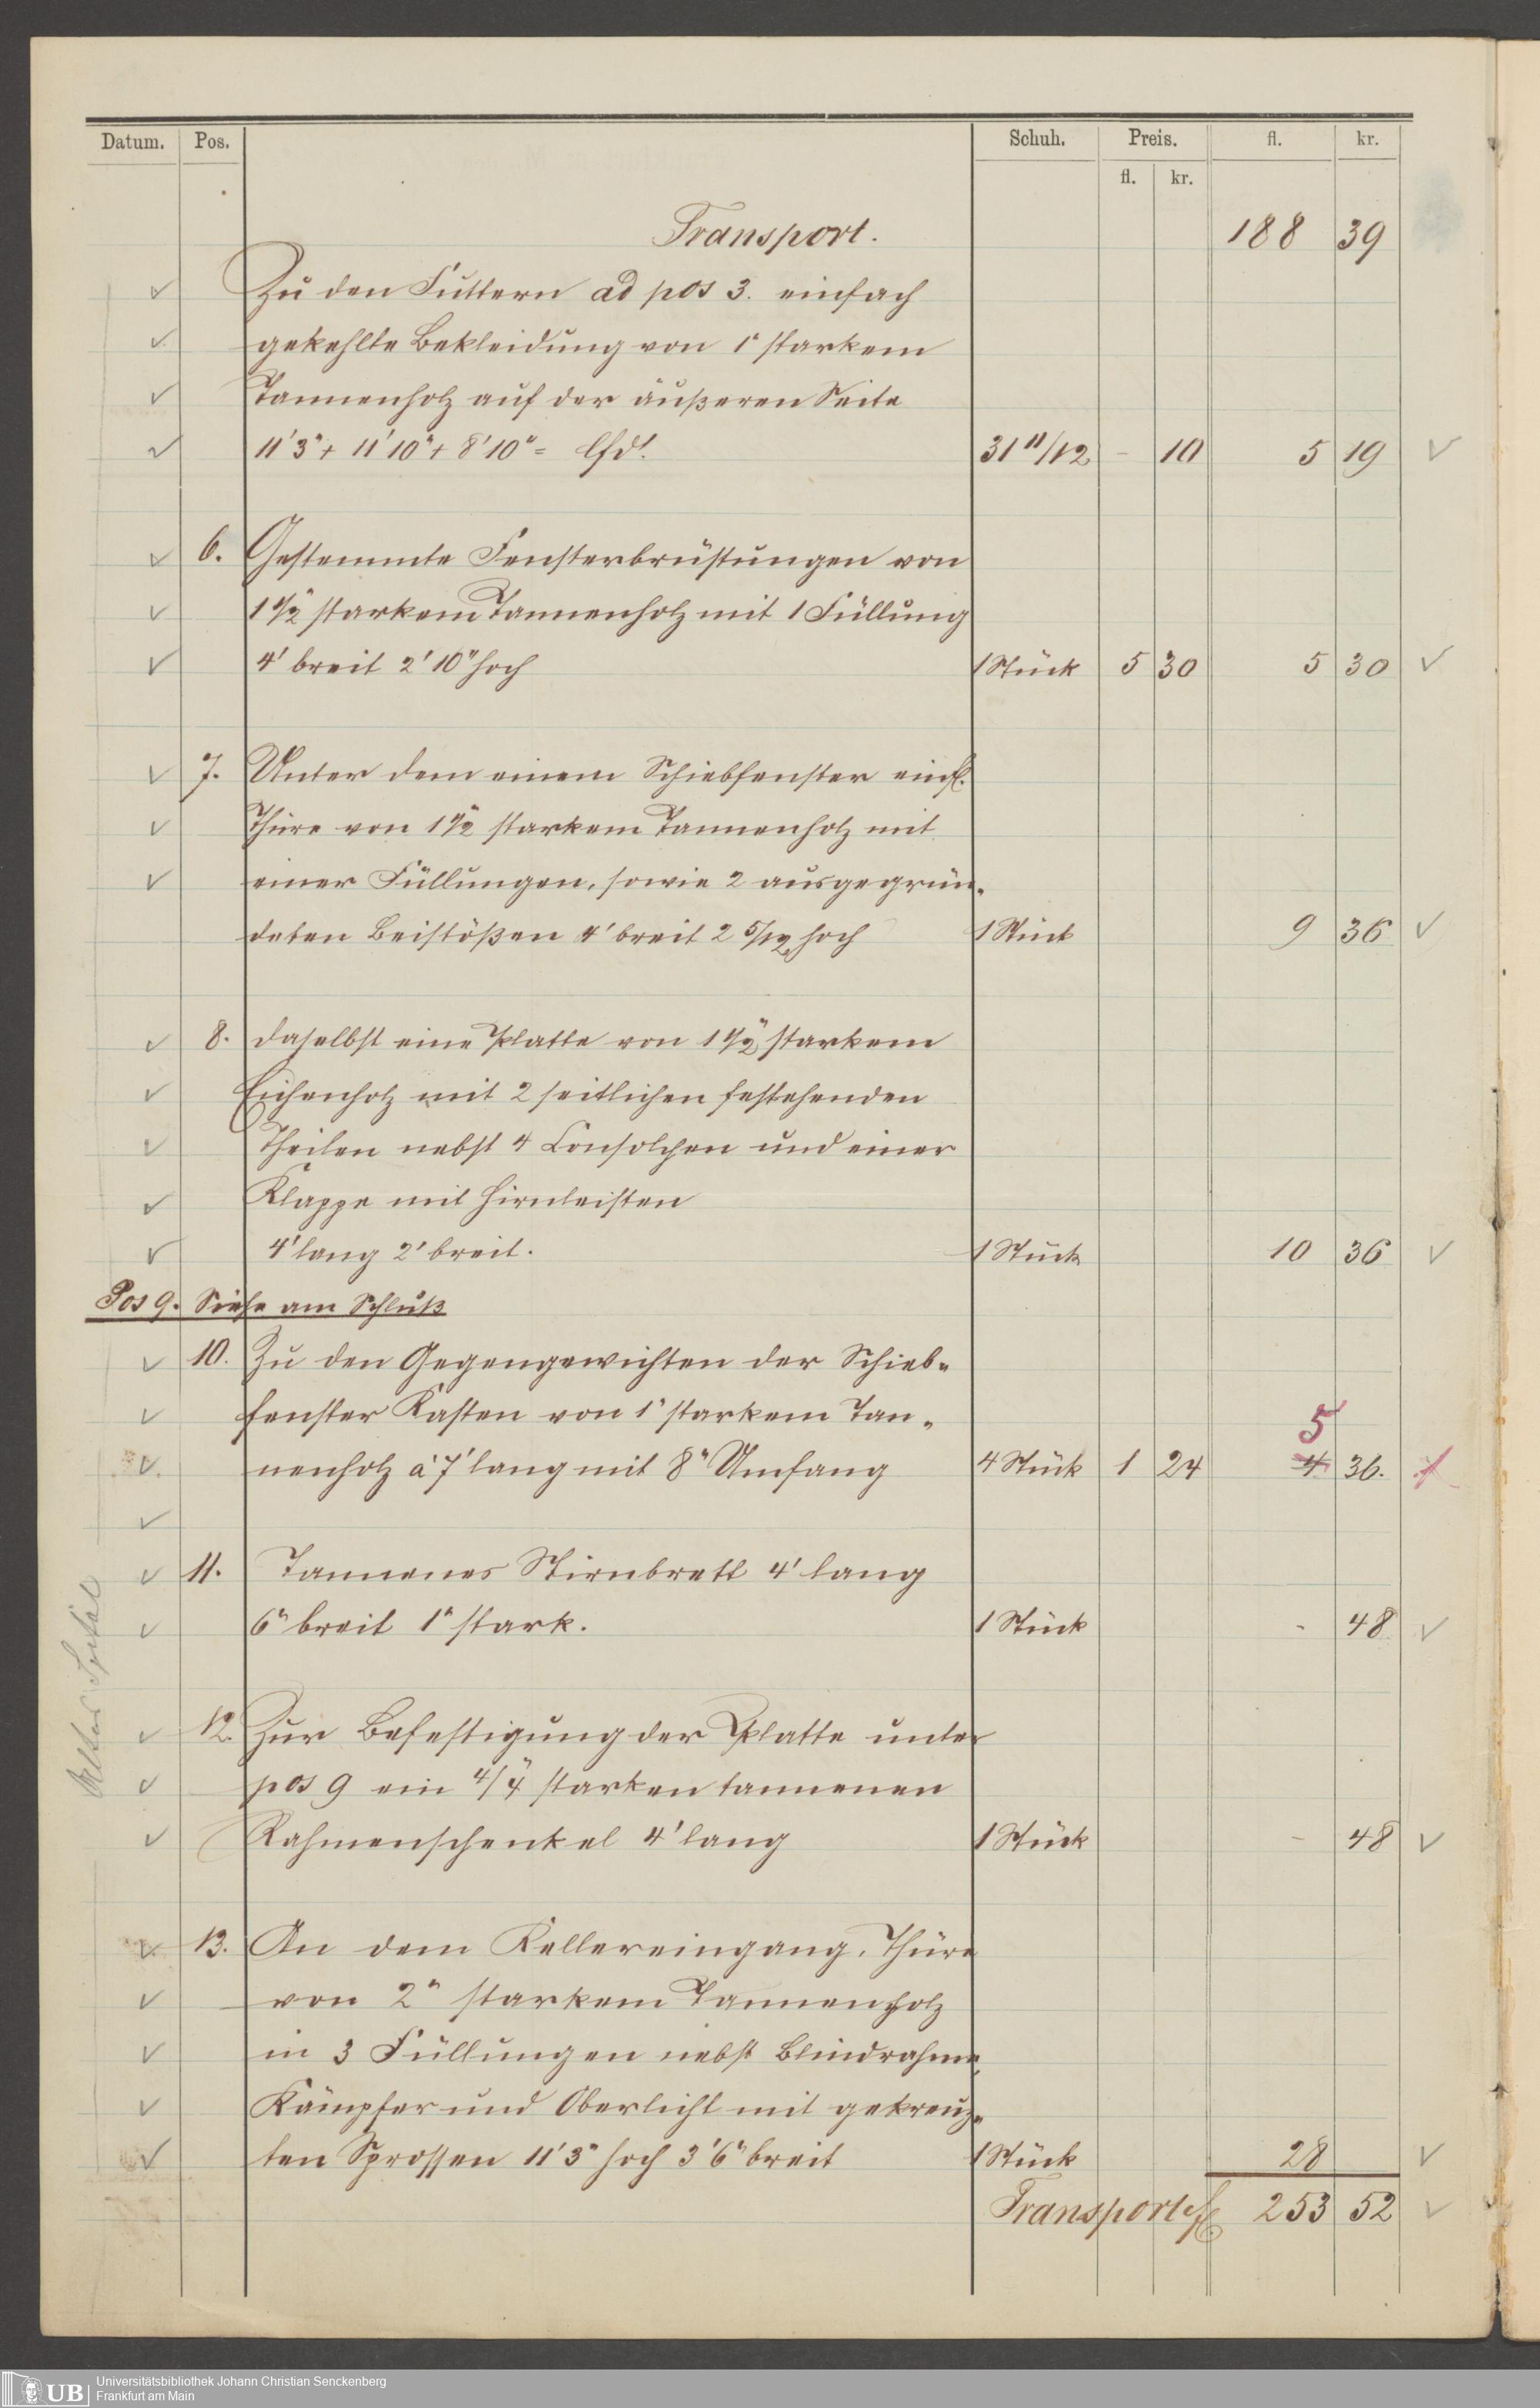 Datum. Pos. Schuh. Preis. fl. kr.
fl. kr.
Transport. 188 39
Zu den Futtern ad pos 3. einfach
gekehlte Bekleidung von 1" starkem
Tannenholz auf der äußeren Seite
11'3" + 11'10" + 8'10" = lfd'. 31 11/12 - 10 5 19
6. Gestemmte Fensterbrüstungen von
1 1/2" starkem Tannenholz mit 1 Füllung
4' breit 2'10" hoch 1 Stück 5 30 5 30
7. Unter dem einem Schiebfenster einfl.
Thüre von 1 1/2" starkem Tannenholz mit
einer Füllungen, sowie 2 ausgegrün-
deten Beistößen 4' breit 2 5/12 hoch 1 Stück 9 36
8. daselbst eine Platte von 1 1/2" starkem
Eichenholz mit 2 seitlichen festehenden
Theilen nebst 4 Consolchen und einer
Klappe mit Hirnleisten
4' lang 2' breit. 1 Stück 10 36
Pos 9. Siehe am Schluß
10. Zu den Gegengewichten der Schieb-
fenster Kasten von 1" starkem Tan-
5
nenholz à 7' lang mit 8" Umfang 4 Stück 1 24 4 36.
11. Tannenes Stirnbrett 4' lang
6" breit 1" stark. 1 Stück - 48
12. Zur Befestigung der Platte unter
pos 9 ein 4/4" starken tannenen
Rahmenschenkel 4' lang 1 Stück - 48
13. An dem Kellereingang, Thüre
von 2" starkem Tannenholz
in 3 Füllungen nebst Blindrahme,
Kämpfer und Oberlicht mit gekreuz-
ten Sprossen 11'3" hoch 3'6" breit 1 Stück 28
Transport fl 253 52
UB Universitätsbibliothek Johann Christian Senckenberg
Frankfurt am Main